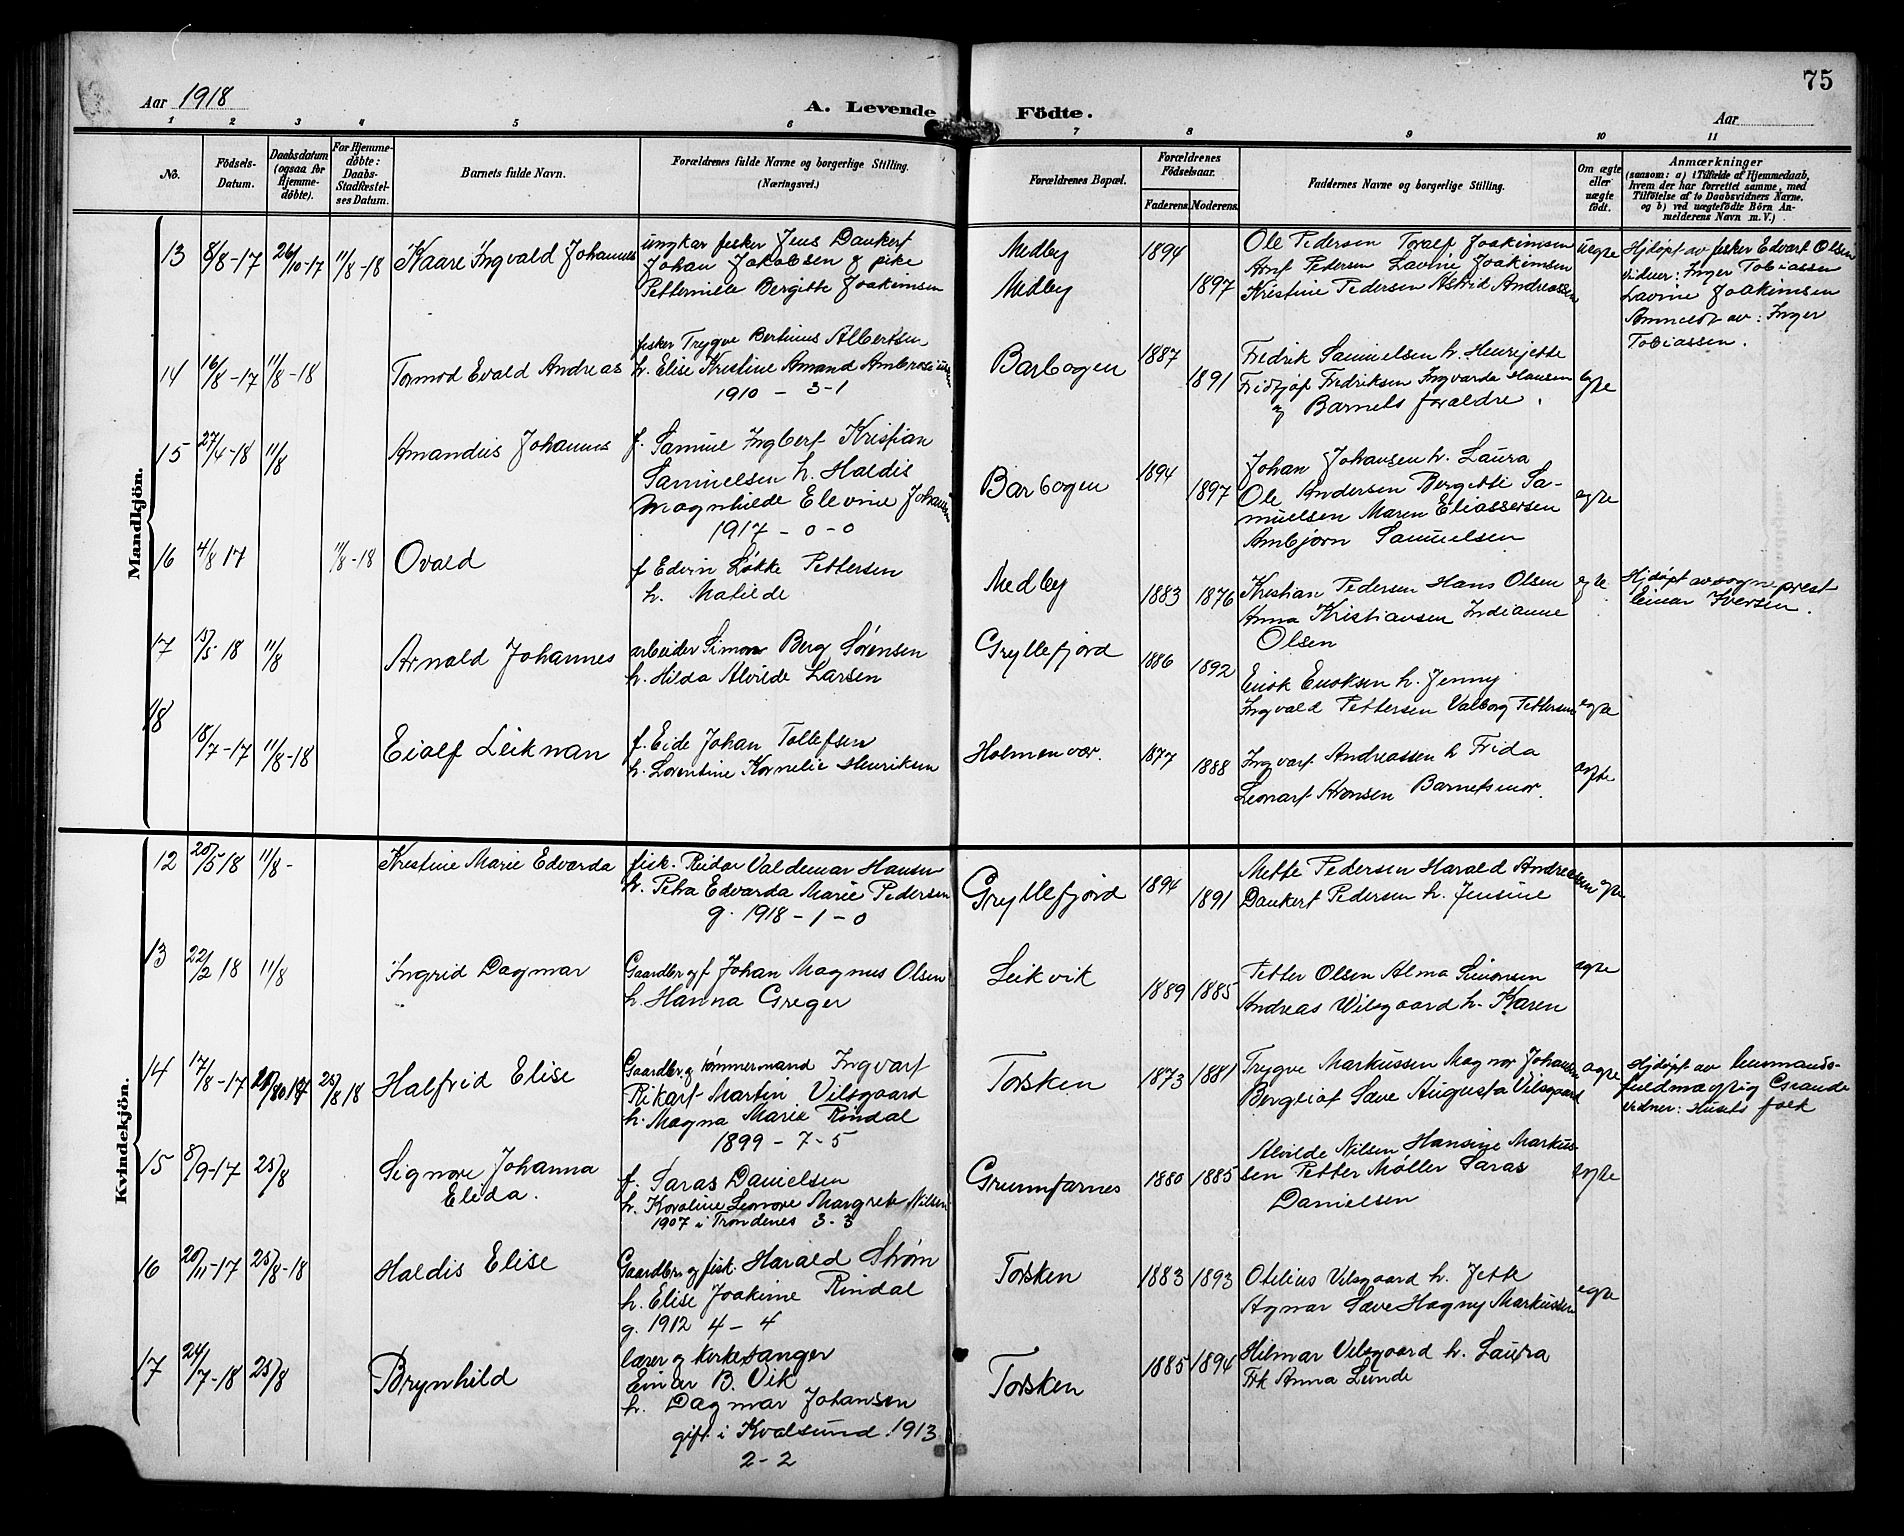 Aar 1918
A. Levende Födte.
75
Aar
1 2 3 4 5 6 7 8 9 10 11
No.
Födsels-Datum.
Daabsdatum (ogsaa for Hjemme-döbte).
For Hjemme-döbte: Daabs-Stadfæstel-ses Datum.
Barnets fulde Navn.
Forældrenes fulde Navne og borgerlige Stilling. (Næringsvei.)
Forældrenes Bopæl.
Forældrenes Födselsaar.
Faderens. Moderens.
Faddernes Navne og borgerlige Stilling.
Om ægte eller uægte födt.
Anmærkninger
(saasom: a) i Tilfælde af Hjemmedaab,
hvem der har forrettet samme, med
Tilföielse af to Daabsvidners Navne.
og b) ved uægtefödte Börn An-
melderens Navn m. V.)
Mandkjön.
13 8/8-17 26/10-17 11/8-18 Kaare Ingvald Johannes
ungkar fisker Jens Dankert
Johan Jakobsen & pike
Petternille Bergitte Joakimsen
Medby
Medby
1894
1897
Ole Pedersen Toralf Joakimsen
Arnt Pedersen Lavine Joakimsen
Kristine Pedersen Astrid Andreassen
uegte
Hjdøpt av fisker Edvart Olsen
vidner: Inger Tobiassen
Lavine Joakimsen
Anmeldt av: Inger
Tobiassen.
14 16/8-17 11/8-18 Tormod Evald Andreas
fisker Trygve Bertinus Albertsen
h. Elise Kristine Amand Ambrosiussen
1910 - 3-1
Barbogen
1887
1891
Fredrik Samuelsen h. Henrijette
Fridtjof Fredriksen Ingvarda Hansen
og Barnets forældre.
egte
15 27/4-18 11/8
Amandus Johannes
f. Samuel Ingbert Kristian
Samuelsen h. Haldis
Magnhilde Elevine Johansen
1917 - 0 - 0
Barbogen
1894
1897
Johan Johansen h. Laura
Ole Andersen Bergitte Sa-
muelsen Maren Eliassersen
Arnbjørn Samuelsen
egte
16 4/8 17 11/8-18 Ovald
f Edvin Løkke Pettersen
h. Matilde
Medby
1883 1876
Kristian Pedersen Hans Olsen
Anna Kristiansen Indianne
Olsen
egte
Hjdøpt av sogneprest
Einar Iversen.
17 15/5 18 11/8
Arnold Johannes
arbeider Simon Berg Sørensen
h. Hilda Alvilde Larsen
Gryllefjord
1886 1892
Enok Enoksen h. Jenny
Ingvald Pettersen Valborg Pettersen
egte
18
18/7-17 11/8-18 Eiolf Leiknan
f. Eide Johan Tollefsen
h. Lorentine Kornelie Henriksen
Holmenvær.
1877 1888
Ingvart Andreassen h Frida
Leonart Aronsen Barnets mor.
egte
Kvindekjön.
12 20/5 18 11/8-
Kristine Marie Edvarda
fisk. Reidar Valdemar Hansen
h. Petra Edvarda Marie Pedersen
g. 1918 - 1 - 0
Gryllefjord
1894
1891
Mette Pedersen Harald Andreassen
Dankert Pedersen h. Jensine
egte
13 22/2 18 11/8
Ingrid Dagmar
Gaardbr og f Johan Magnus Olsen
h. Hanna Greger
Leikvik
1889 1885
Petter Olsen Alma Simonsen
Andreas Wilsgaard h. Karen
egte
14 17/8-17 25/8 18
Halfrid Elise
Gaardbr. og tømmermand Ingvart
Rikart Martin Vilsgaard
h. Magna Marie Rindal
1899 - 7 - 5
Torsken
1873 1881
Trygve Markussen Magnor Johansen
Bergliot Sæve Augusta Vilsgaard
egte
Hjdøpt av lensmands-
fuldmægtig Grande
vidner: Husets folk
15 8/9-17 25/8
Signore Johanna
Elida.
f. Saras Danielsen
h. Karoline Leonore Margrete Nilsen
1907 i Trondenes 3-3
Grunnfarnes
1880 1885
Alvilde Nilsen Hansine Markus-
sen Petter Møller Saras
Danielsen
egte
16 20/11-17 25/8-18
Haldis Elise
Gaardbr. og fisk. Harald Strøm
h. Elise Joakime Rindal
g. 1912 4 - 4
Torsken
1883 1893
Otelius Vilsgaard h. Jette
Agnar Sæve Hagny Markussen
egte
17 24/7-18 25/8
Brynhild
lærer og kirkesanger
Einar B. Vik
h. Dagmar Johansen
gift i Kvalsund. 1913
2-2
Torsken
1885 1894
Hilmar Vilsgaard h. Laura
Frk Anna Lunde